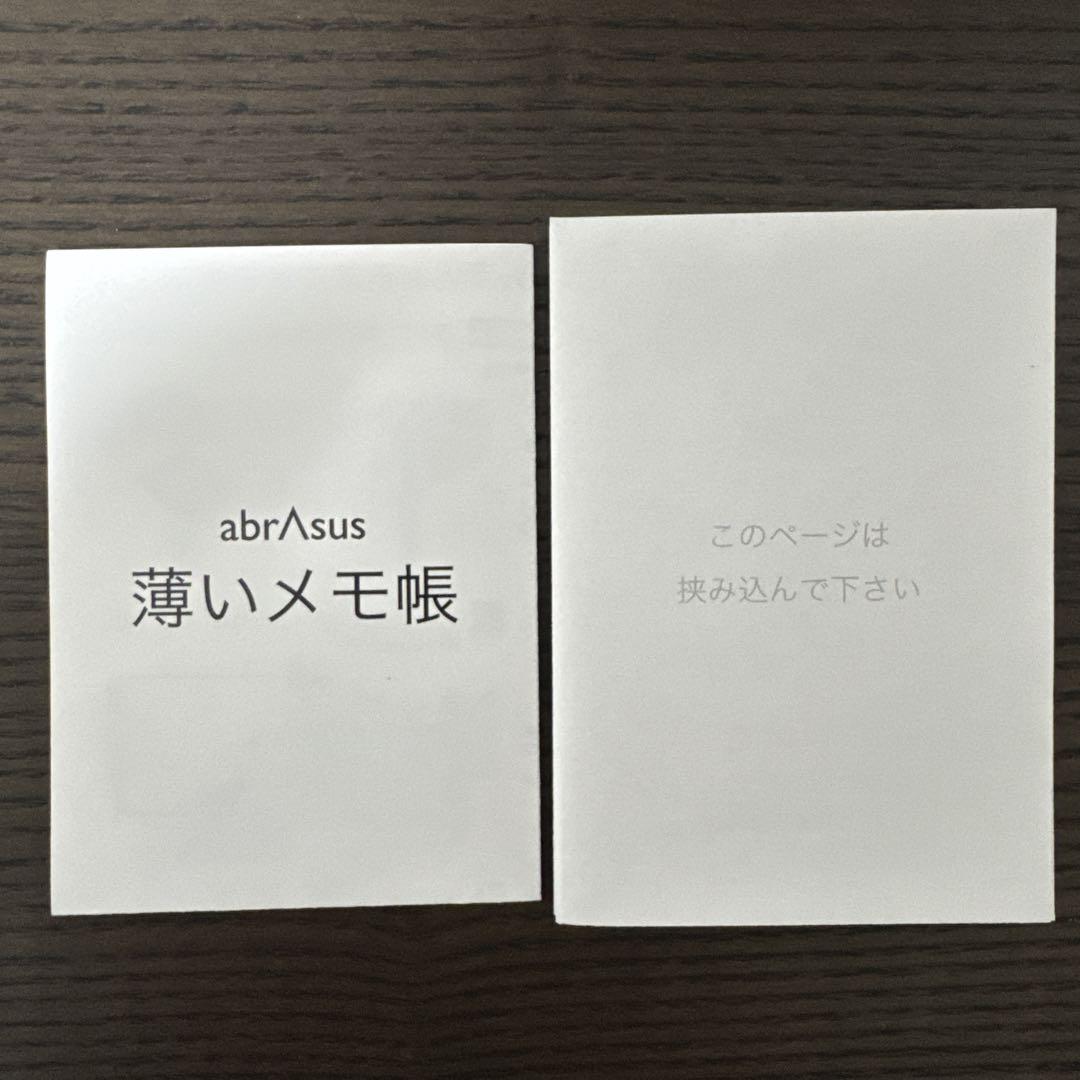 abrΛsus
薄いメモ帳
このページは
挟み込んで下さい